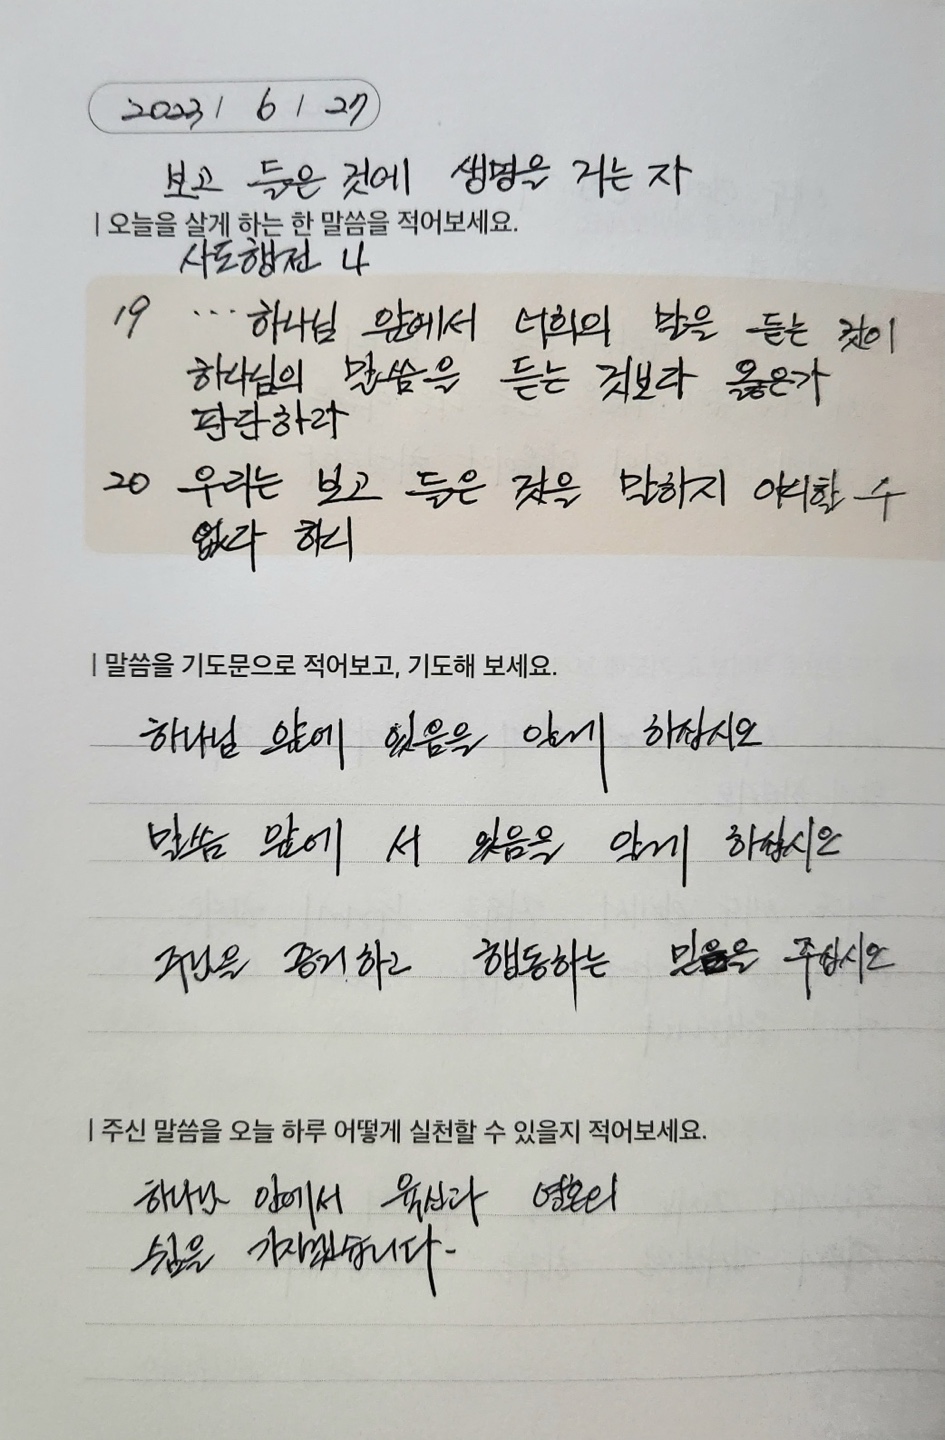 2023 / 6 / 27
보고 들은 것에 생명을 거는 자
| 오늘을 살게 하는 한 말씀을 적어보세요.
사도행전 4
19 … 하나님 앞에서 너희의 말을 듣는 것이
하나님의 말씀을 듣는 것보다 옳은가
판단하라
20 우리는 보고 들은 것을 말하지 아니할 수
없다 하니
| 말씀을 기도문으로 적어보고, 기도해 보세요.
하나님 앞에 있음을 알게 하십시오
말씀 앞에 서 있음을 알게 하십시오
주님을 증거하고 행동하는 믿음을 주십시오
| 주신 말씀을 오늘 하루 어떻게 실천할 수 있을지 적어보세요.
하나님 앞에서 육신과 영혼의
쉼을 가지겠습니다-